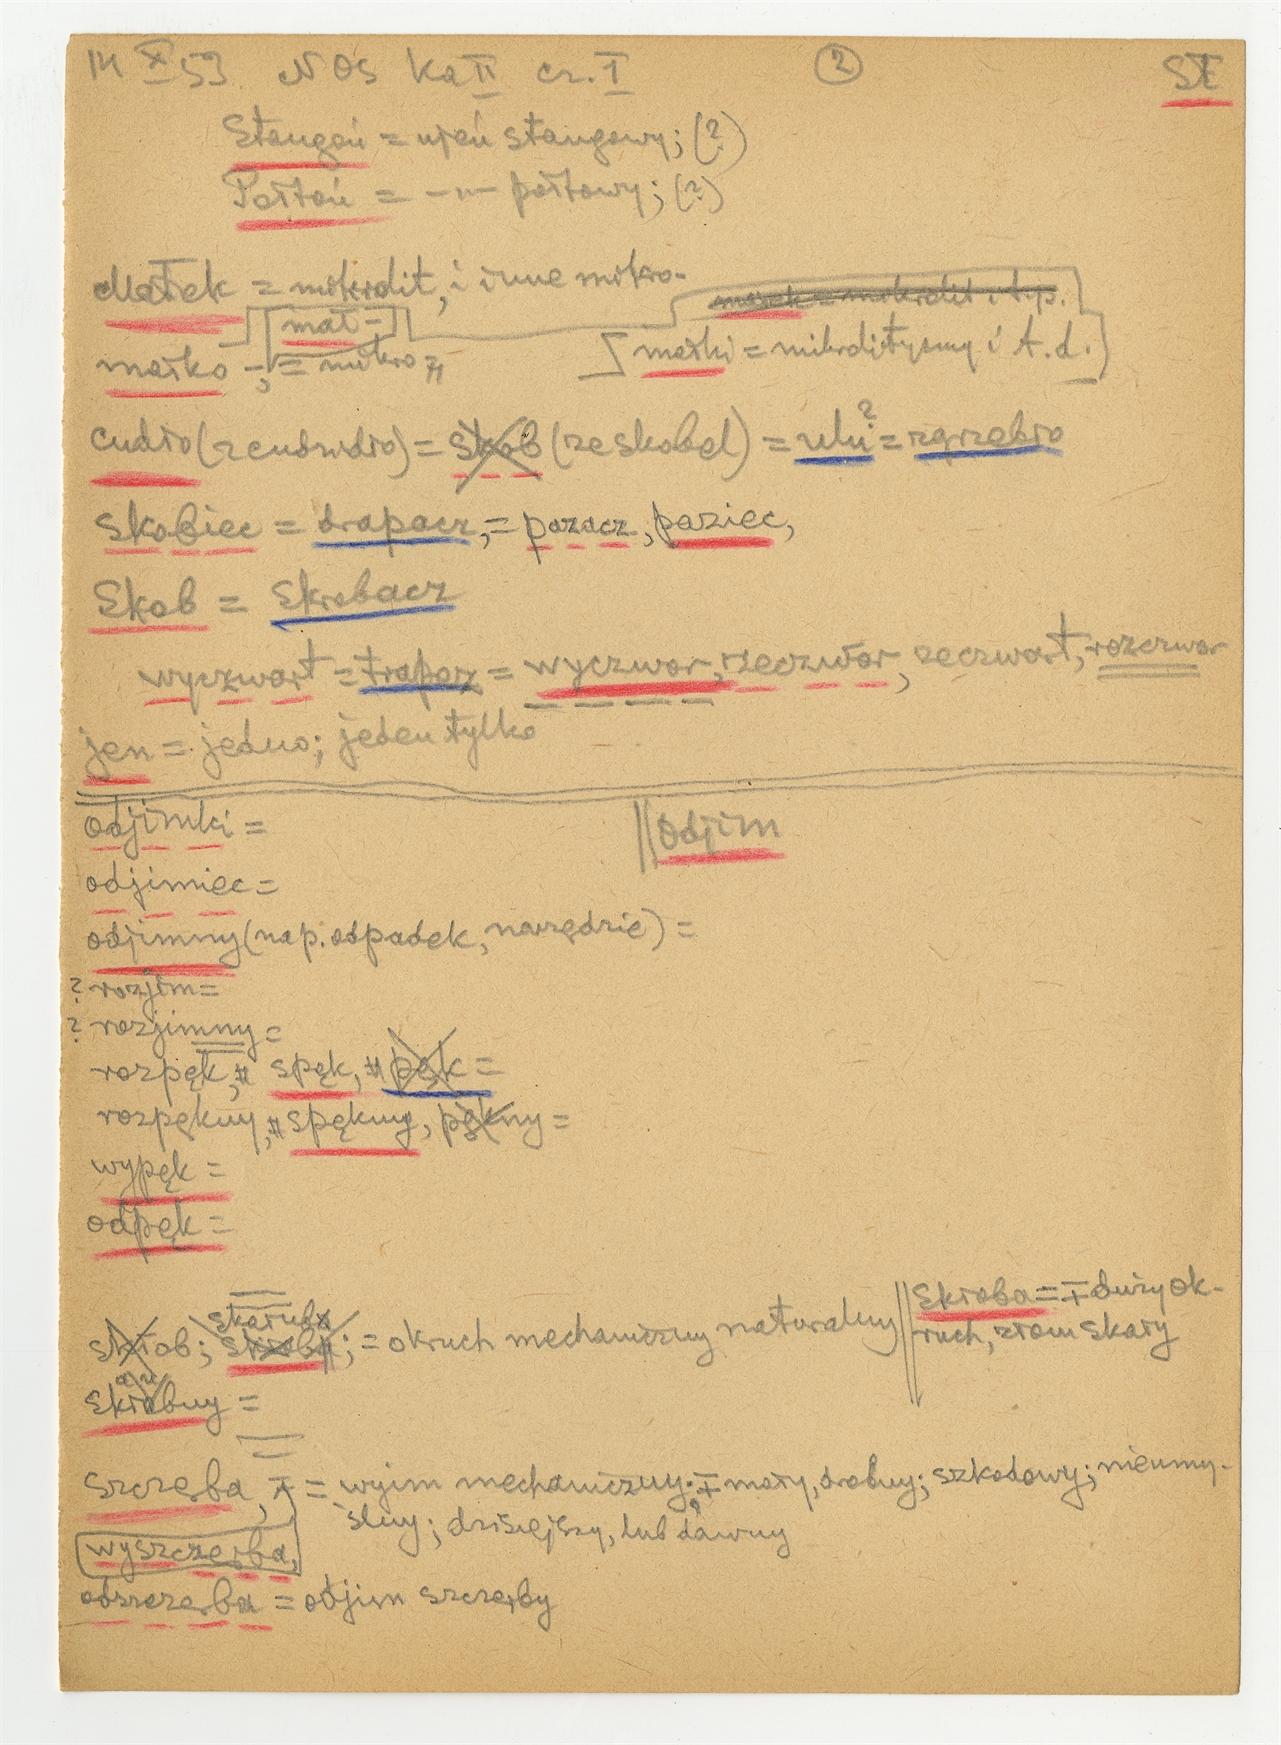 14 X 53 NOS Ka II cz. I (2) STE
Stangań = wień stangowy; (?)
Portań = —"— portowy; (?)
Małek = mikrolit, i inne mikro-
małek = mikrolit i typ.
mał-
małko -, = mikro,,
małki = mikrolityzmy i t.d.
cudło (z cudzidło) = skob (ze skobel) = ulu? = zgrzebło
skobiec = drapacz, = pazacz, paziec,
Skob = Skrobacz
wyczwart = trapez = wyczwor, zeczwor, zeczwart, rozczwor
jen = jedno; jeden tylko
odjimki = || odjim
odjimiec =
odjimny (nap. odpadek, narzędzie) =
? rozjim =
? rozjimny =
rozpęk, spęk, pęk =
rozpękny, spękny, pękny =
wypęk =
odpęk =
skałuba
skłob; skłoba; = okruch mechaniczny naturalny || Skłoba = ∓ duży ok-
ruch, złom skały
skłobny =
szczerba, = wyjim mechaniczny; ∓ mały, drobny; szkodowy; nieumy-
ślny; dzisiejszy, lub dawny
wyszczerba,
odszczerba = odjim szczerby